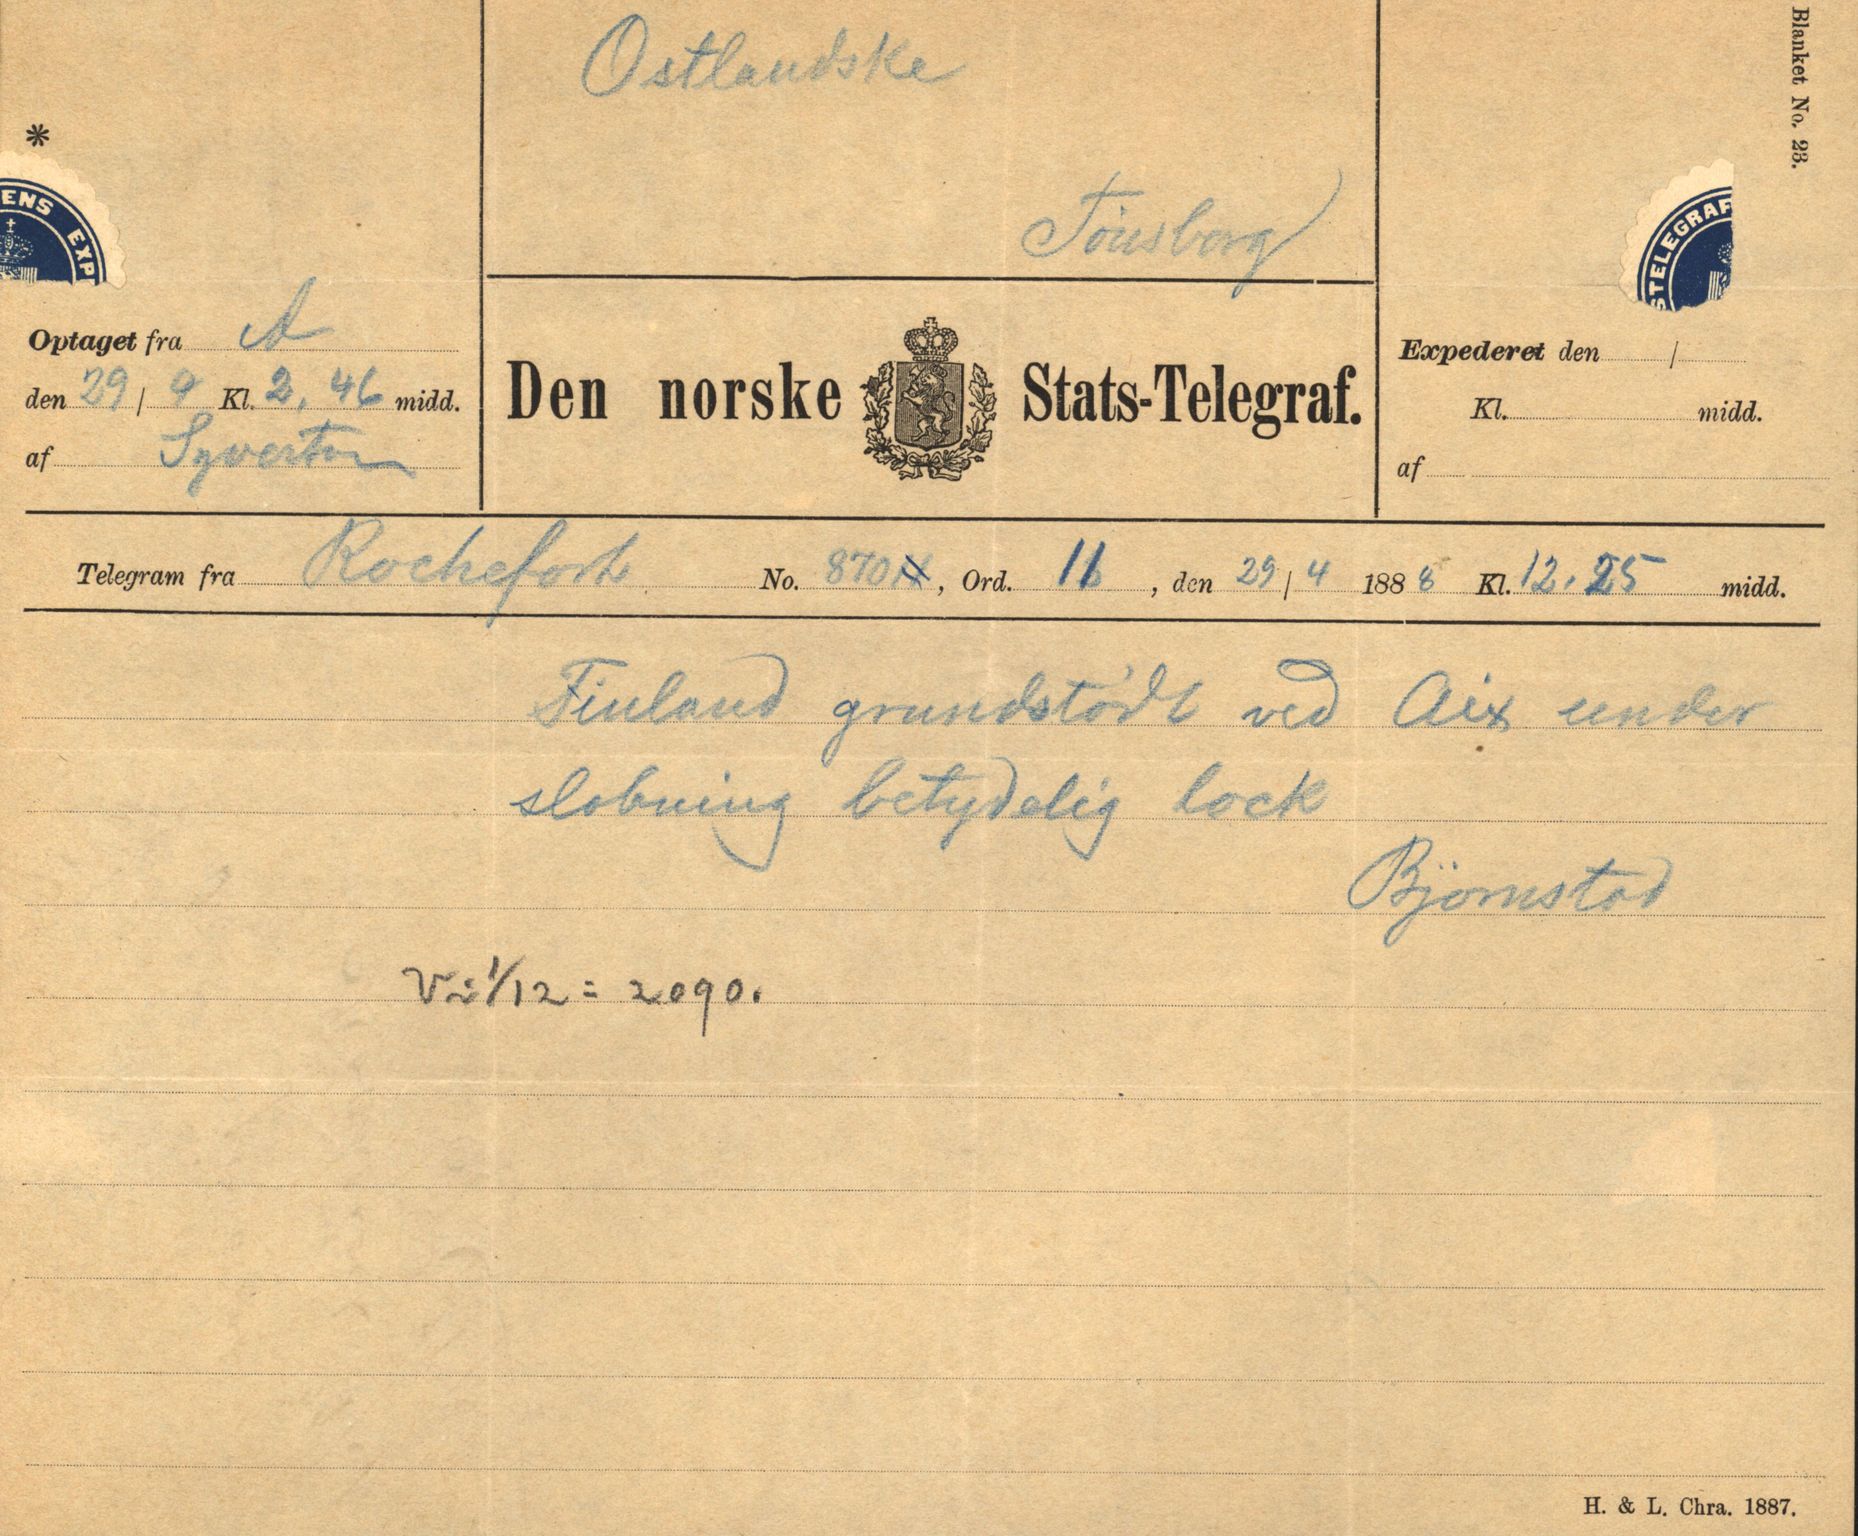 Ostlandske
Tönsberg
Blanket No. 23.
*
ENS EXP
STELEGRAF
Optaget fra A
den 29 / 4 Kl. 2,46 midd.
af Syvertsen
Den norske Stats-Telegraf.
Expederet den /
Kl. midd.
af
Telegram fra Rochefort No. 870, Ord. 11, den 29 / 4 1888 Kl. 12.25 midd.
Finland grundstödt ved Aix under
slobning betydelig lock
Björnstad
1/12 = 2090.
H. & L. Chra. 1887.